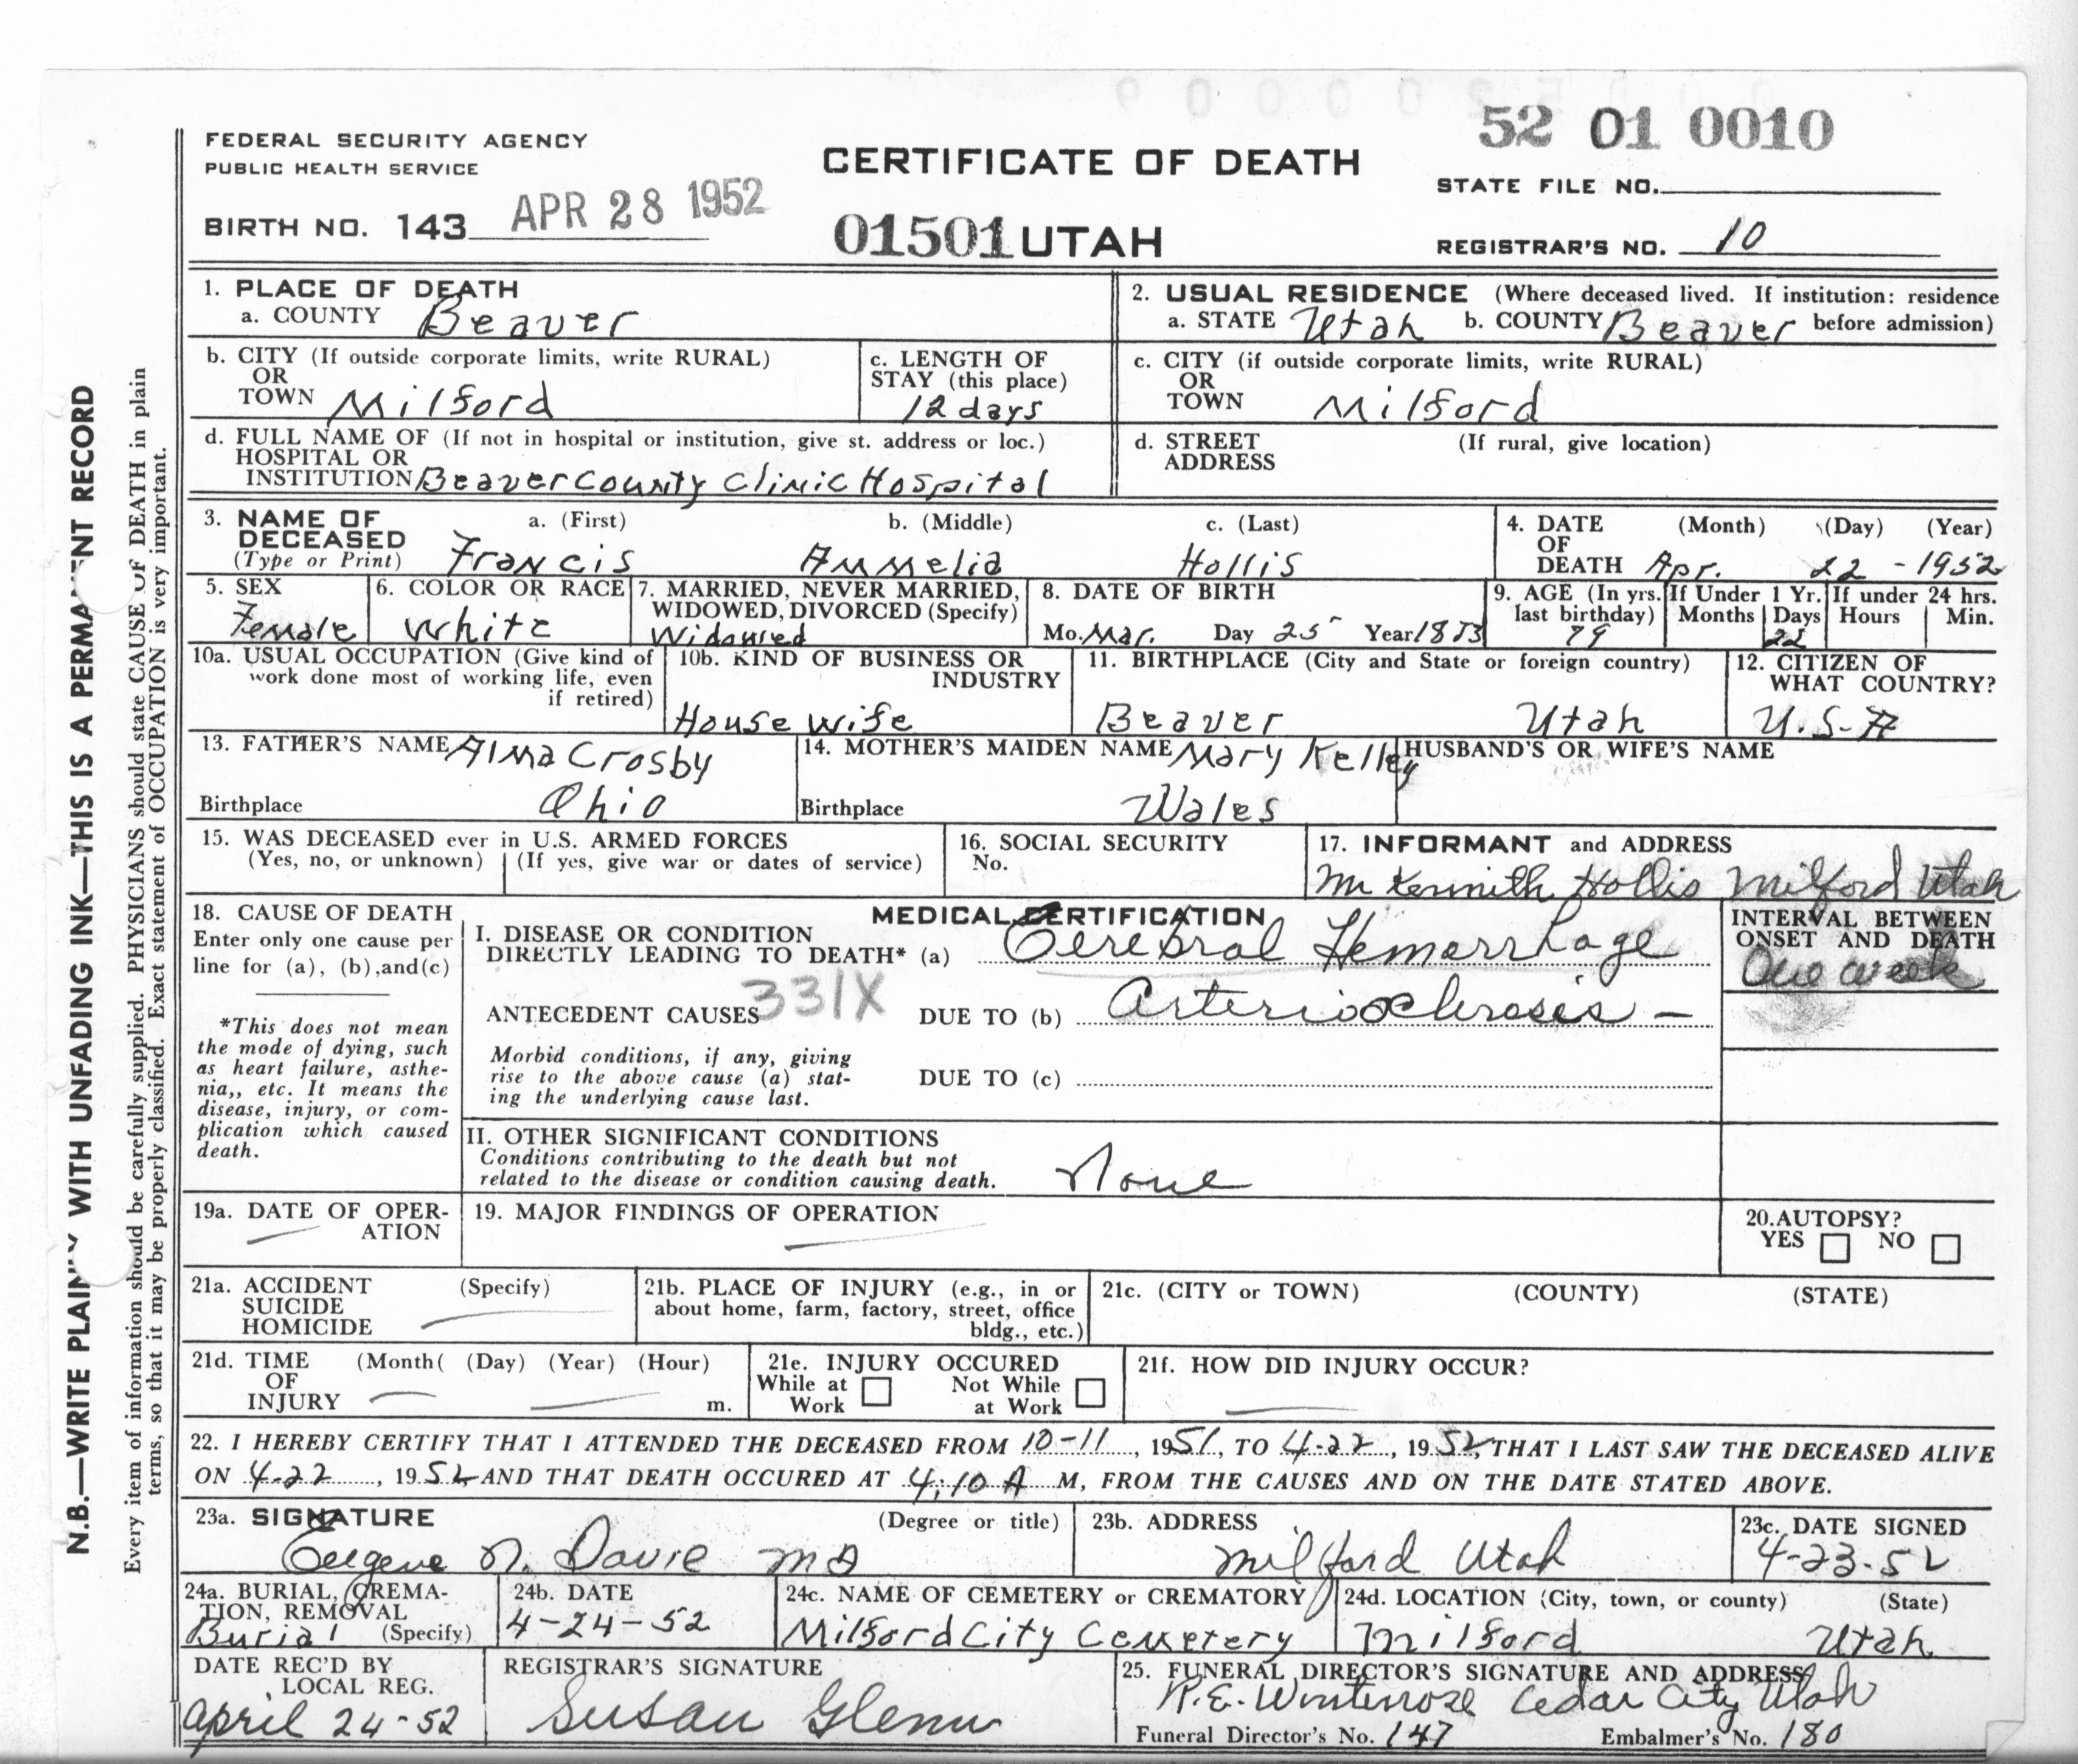 52 01 0010
FEDERAL SECURITY AGENCY
PUBLIC HEALTH SERVICE
CERTIFICATE OF DEATH
STATE FILE NO.
BIRTH NO. 143 APR 28 1952
01501 UTAH
REGISTRAR'S NO. 10
N.B.—WRITE PLAINLY WITH UNFADING INK—THIS IS A PERMANENT RECORD
Every item of information should be carefully supplied. PHYSICIANS should state CAUSE OF DEATH in plain
terms, so that it may be properly classified. Exact statement of OCCUPATION is very important.
1. PLACE OF DEATH
a. COUNTY Beaver
2. USUAL RESIDENCE (Where deceased lived. If institution: residence
a. STATE Utah b. COUNTY Beaver before admission)
b. CITY (If outside corporate limits, write RURAL)
OR
TOWN Milford
c. LENGTH OF
STAY (this place)
12 days
c. CITY (if outside corporate limits, write RURAL)
OR
TOWN Milford
d. FULL NAME OF (If not in hospital or institution, give st. address or loc.)
HOSPITAL OR
INSTITUTION Beaver County Clinic Hospital
d. STREET (If rural, give location)
ADDRESS
3. NAME OF a. (First) b. (Middle) c. (Last)
DECEASED
(Type or Print) Francis Ammelia Hollis
4. DATE (Month) (Day) (Year)
OF
DEATH Apr. 22 - 1952
5. SEX
Female
6. COLOR OR RACE
White
7. MARRIED, NEVER MARRIED,
WIDOWED, DIVORCED (Specify)
Widowed
8. DATE OF BIRTH
Mo. Mar. Day 25 Year
9. AGE (In yrs. If Under 1 Yr. If under 24 hrs.
last birthday) Months Days Hours Min.
79 22
10a. USUAL OCCUPATION (Give kind of
work done most of working life, even
if retired)
10b. KIND OF BUSINESS OR
INDUSTRY
House wife
11. BIRTHPLACE (City and State or foreign country)
Beaver Utah
12. CITIZEN OF
WHAT COUNTRY?
U.S.A
13. FATHER'S NAME Alma Crosby
Birthplace Ohio
14. MOTHER'S MAIDEN NAME Mary Kelley
Birthplace Wales
HUSBAND'S OR WIFE'S NAME
15. WAS DECEASED ever in U.S. ARMED FORCES
(Yes, no, or unknown) (If yes, give war or dates of service)
16. SOCIAL SECURITY
No.
17. INFORMANT and ADDRESS
Mr Kennith Hollis Milford Utah
18. CAUSE OF DEATH
Enter only one cause per
line for (a), (b),and(c)
*This does not mean
the mode of dying, such
as heart failure, asthe-
nia,, etc. It means the
disease, injury, or com-
plication which caused
death.
MEDICAL CERTIFICATION
I. DISEASE OR CONDITION
DIRECTLY LEADING TO DEATH* (a) Cerebral Hemorrhage
INTERVAL BETWEEN
ONSET AND DEATH
One week
ANTECEDENT CAUSES 331X DUE TO (b) Arteriosclerosis —
Morbid conditions, if any, giving
rise to the above cause (a) stat-
ing the underlying cause last.
DUE TO (c)
II. OTHER SIGNIFICANT CONDITIONS
Conditions contributing to the death but not
related to the disease or condition causing death. None
19a. DATE OF OPER-
ATION
19. MAJOR FINDINGS OF OPERATION
20. AUTOPSY?
YES NO
21a. ACCIDENT (Specify)
SUICIDE
HOMICIDE
21b. PLACE OF INJURY (e.g., in or
about home, farm, factory, street, office
bldg., etc.)
21c. (CITY or TOWN) (COUNTY) (STATE)
21d. TIME (Month( (Day) (Year) (Hour)
OF
INJURY m.
21e. INJURY OCCURED
While at Not While
Work at Work
21f. HOW DID INJURY OCCUR?
22. I HEREBY CERTIFY THAT I ATTENDED THE DECEASED FROM 10-11, 1951, TO 4-22, 1952, THAT I LAST SAW THE DECEASED ALIVE
ON 4-22, 1952, AND THAT DEATH OCCURED AT 4:10 A M, FROM THE CAUSES AND ON THE DATE STATED ABOVE.
23a. SIGNATURE (Degree or title)
Eugene N. Davie MD
23b. ADDRESS
Milford Utah
23c. DATE SIGNED
4-23-52
24a. BURIAL, CREMA-
TION, REMOVAL
Burial (Specify)
24b. DATE
4-24-52
24c. NAME OF CEMETERY or CREMATORY
Milford City Cemetery
24d. LOCATION (City, town, or county) (State)
Milford Utah
DATE REC'D BY
LOCAL REG.
April 24-52
REGISTRAR'S SIGNATURE
Susan Glenn
25. FUNERAL DIRECTOR'S SIGNATURE AND ADDRESS
R.E. Winterrose Cedar City Utah
Funeral Director's No. 147 Embalmer's No. 180